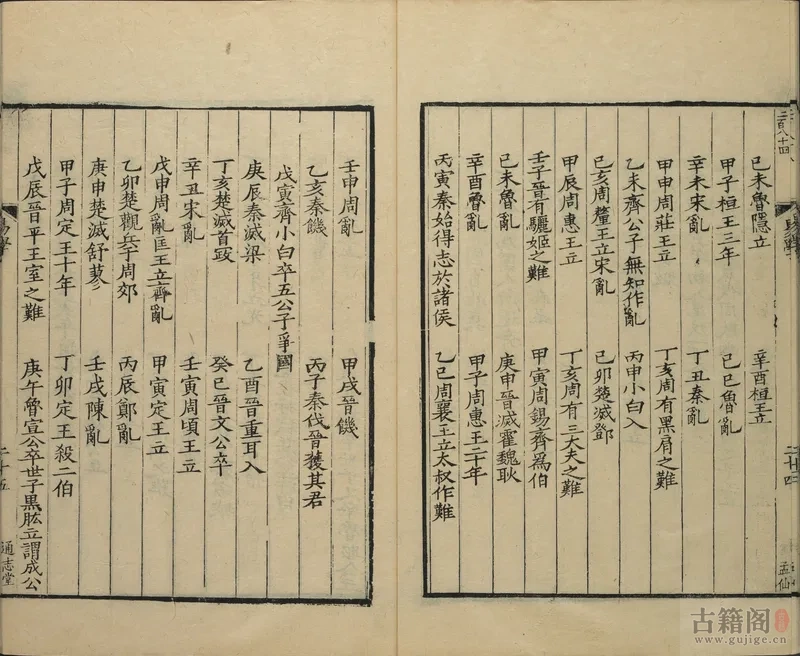 二百八十四
己未魯隱立　辛酉桓王立
甲子桓王三年　己巳魯亂
辛未宋亂　丁丑秦亂
甲申周莊王立　丁亥周有黑肩之難
乙未齊公子無知作亂　丙申小白入
己亥周釐王立宋亂　己卯楚滅鄧
甲辰周惠王立　丁亥周有三大夫之難
壬子晉有驪姬之難　甲寅周錫齊爲伯
己未魯亂　庚申晉滅霍魏耿
辛酉魯亂　甲子周惠王二十年
丙寅秦始得志於諸侯　乙巳周襄王立太叔作難
二十四
孟仙
壬申周亂　甲戌晉饑
乙亥秦饑　丙子秦伐晉獲其君
戊寅齊小白卒五公子爭國
庚辰秦滅梁　乙酉晉重耳入
丁亥楚滅首政　癸巳晉文公卒
辛丑宋亂　壬寅周頃王立
戊申周亂匡王立齊亂　甲寅定王立
乙卯楚觀兵于周郊　丙辰鄭亂
庚申楚滅舒蓼　壬戌陳亂
甲子周定王十年　丁卯定王殺二伯
戊辰晉平王室之難　庚午魯宣公卒世子黑肱立謂成公
二十五
通志堂
古籍阁
www.gujige.cn